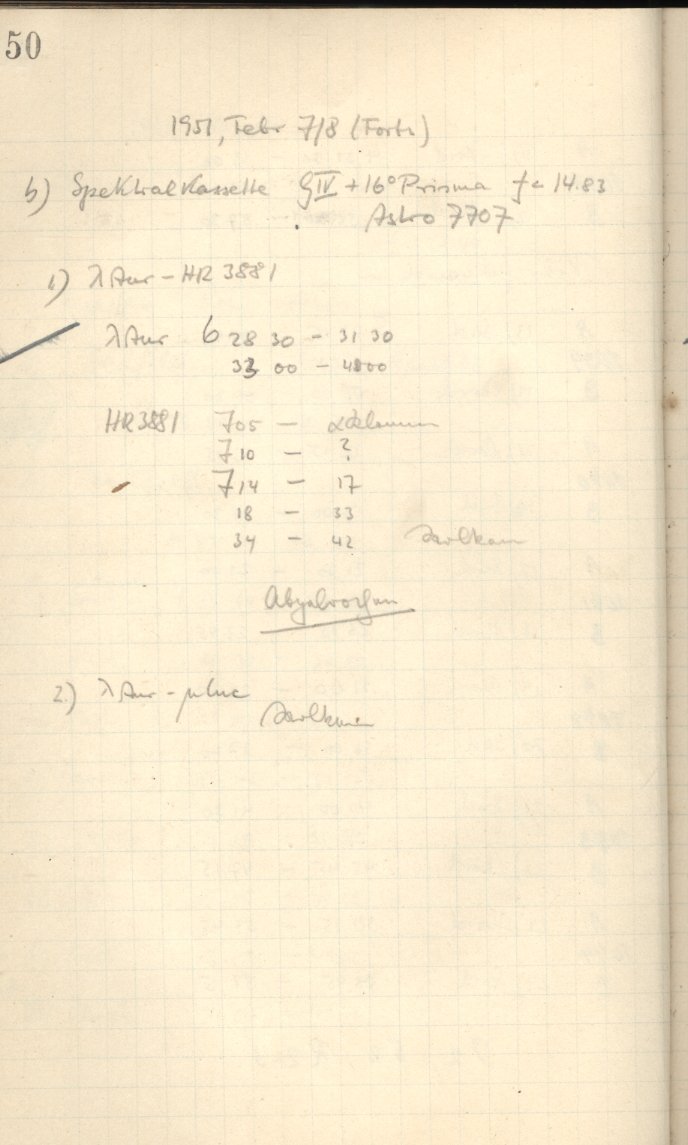 50
1951, Febr 7/8 (Forts)
b) Spektralkassette GIV + 16° Prisma f = 14.83
Astro 7707
1) λ Aur - HR 3881
λ Aur 6 28 30 - 31 30
33 00 - 48 00
HR 3881 7 05 -
7 10 - ?
7 14 - 17
18 - 33
34 - 42 Wolken
Abgebrochen
2.) λ Aur - μ UMa
Wolken